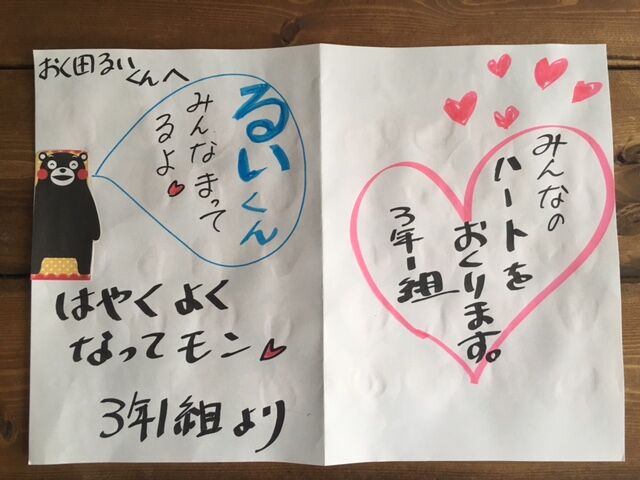 おく田るい
くんへ
るいくん
みんなまって
るよ
はやくよく
なってモン
3年1組より
みんなの
ハートを
おくります。
3年1組